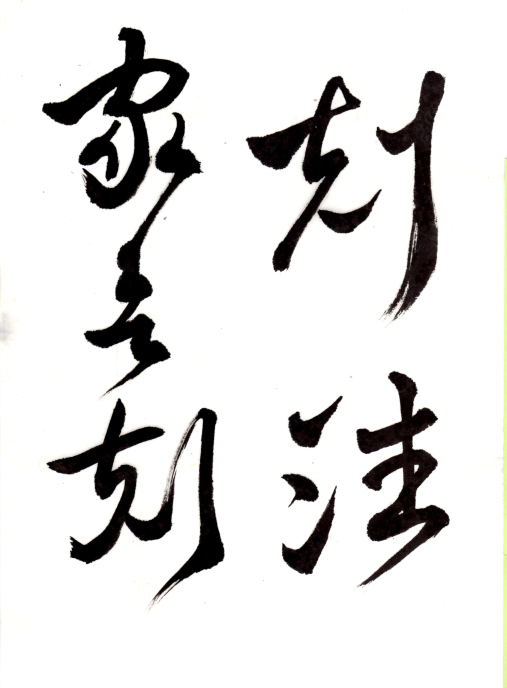 刻法
家言刻